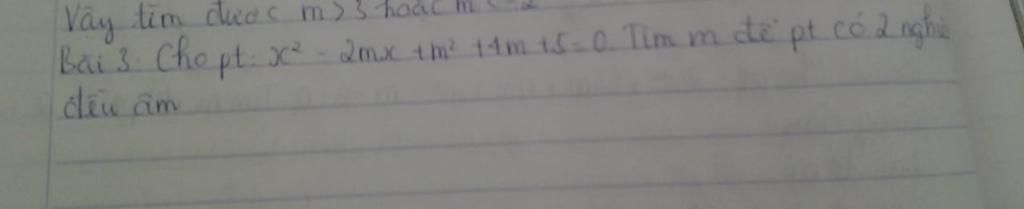 Vậy tìm được m > 3 hoặc m < -2
Bài 3: Cho pt: x² - 2mx + m² + 4m + 5 = 0. Tìm m để pt có 2
đều âm